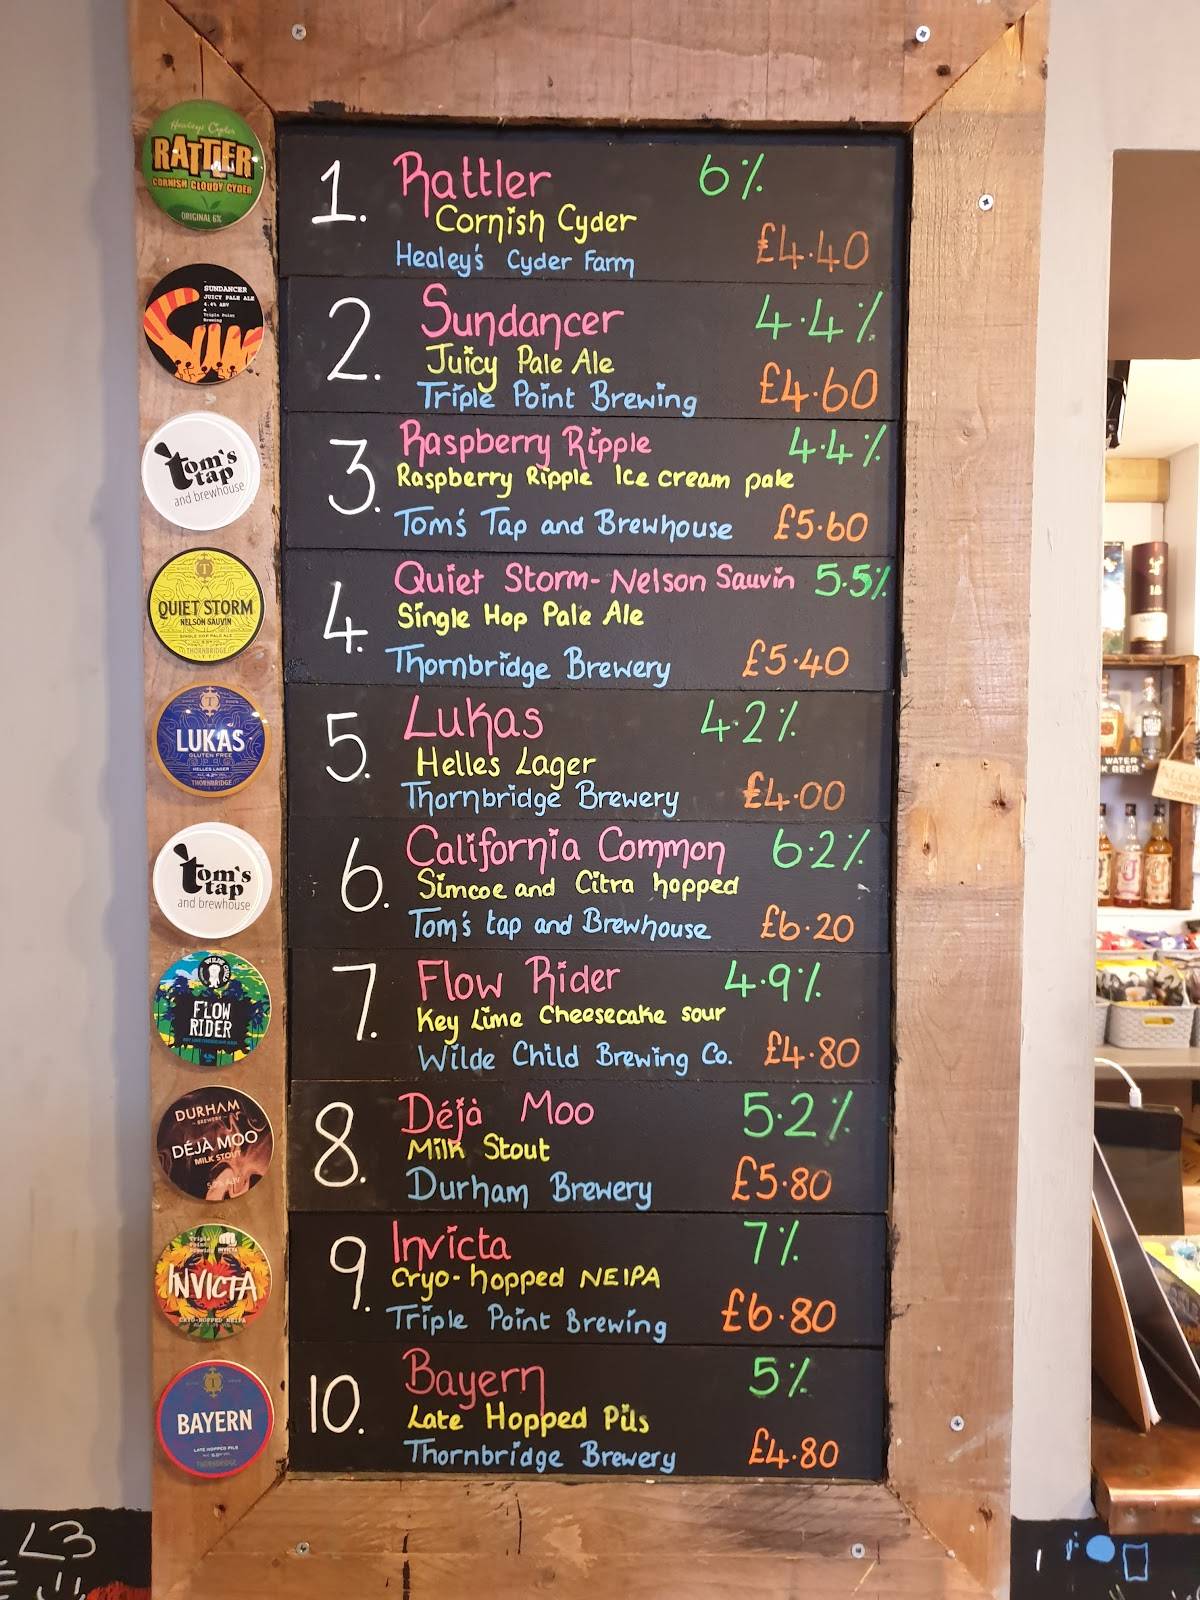 Healeys Cyder
RATTLER
CORNISH CLOUDY CYDER
ORIGINAL 6%
1. Rattler 6%
Cornish Cyder
£4.40
Healey's Cyder Farm
SUNDANCER
JUICY PALE ALE
4.4% ABV
Triple Point
Brewing
2. Sundancer 4.4%
Juicy Pale Ale
Triple Point Brewing £4.60
tom's
tap
and brewhouse
3. Raspberry Ripple 4.4%
Raspberry Ripple Ice cream pale
Tom's Tap and Brewhouse £5.60
QUIET STORM
NELSON SAUVIN
SINGLE HOP PALE ALE
THORNBRIDGE
4. Quiet Storm- Nelson Sauvin 5.5%
Single Hop Pale Ale
Thornbridge Brewery £5.40
LUKAS
GLUTEN FREE
HELLES LAGER
THORNBRIDGE
5. Lukas 4.2%
Helles Lager
Thornbridge Brewery £4.00
tom's
tap
and brewhouse
6. California Common 6.2%
Simcoe and Citra hopped
Tom's tap and Brewhouse £6.20
WILDE CHILD
FLOW
RIDER
KEY LIME CHEESECAKE SOUR
7. Flow Rider 4.9%
Key Lime Cheesecake sour
Wilde Child Brewing Co. £4.80
DURHAM
BREWERY
DÉJÀ MOO
MILK STOUT
8. Déjà Moo 5.2%
Milk Stout
Durham Brewery £5.80
Triple
Point
Brewing
INVICTA
INVICTA
CRYO-HOPPED NEIPA
9. Invicta 7%
Cryo-hopped NEIPA
Triple Point Brewing £6.80
BAYERN
LATE HOPPED PILS
THORNBRIDGE
10. Bayern 5%
Late Hopped Pils
Thornbridge Brewery £4.80
WATER
BEER
18
<3